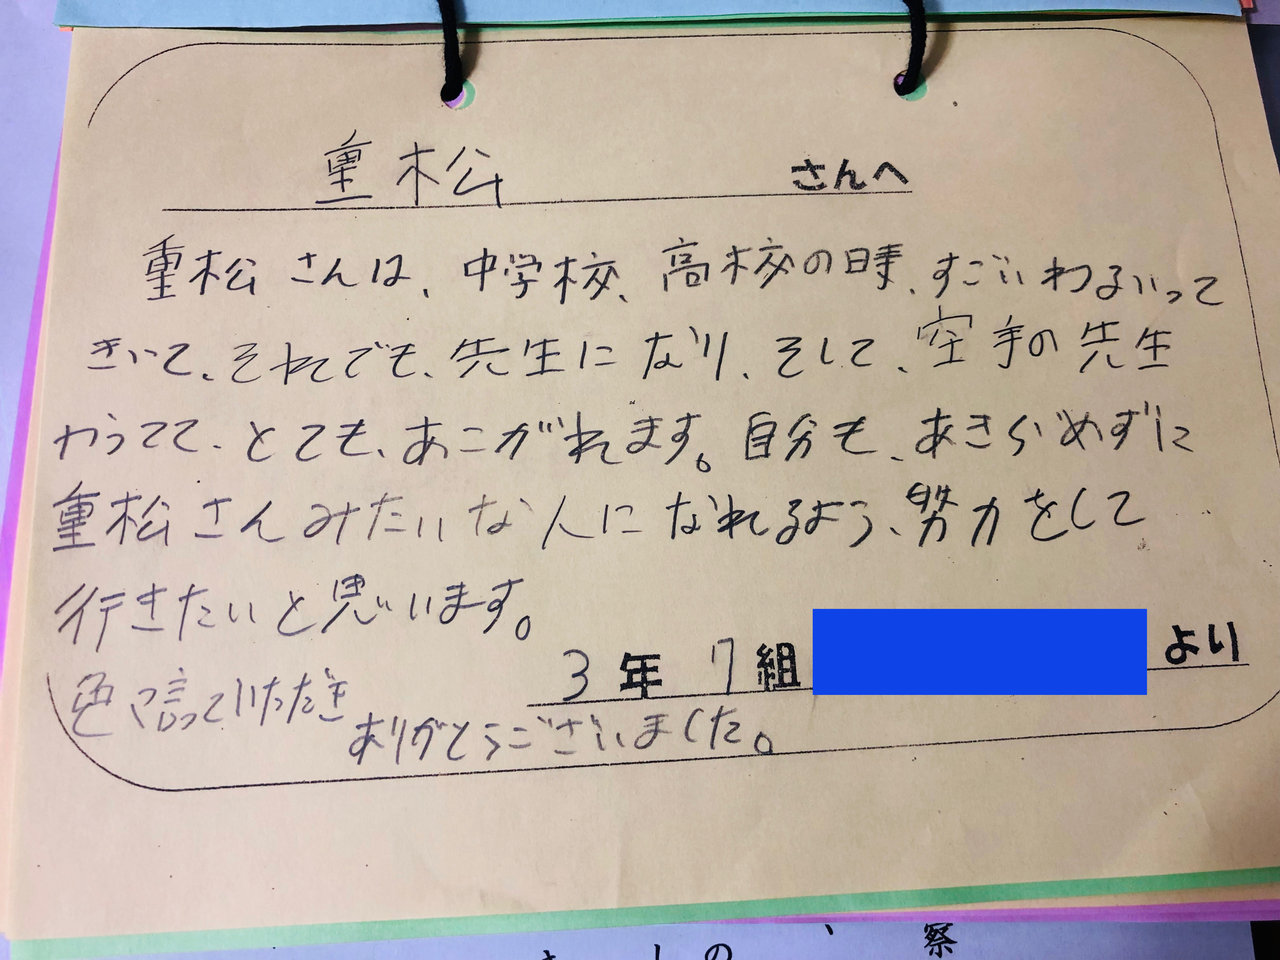 重松 さんへ
重松さんは、中学校、高校の時、すごいわるいって
きいて、それでも、先生になり、そして、空手の先生
やってて、とても、あこがれます。自分も、あきらめずに
重松さんみたいな人になれるよう、努力をして
行きたいと思います。
3年 7組 より
色々言っていただき
ありがとうございました。